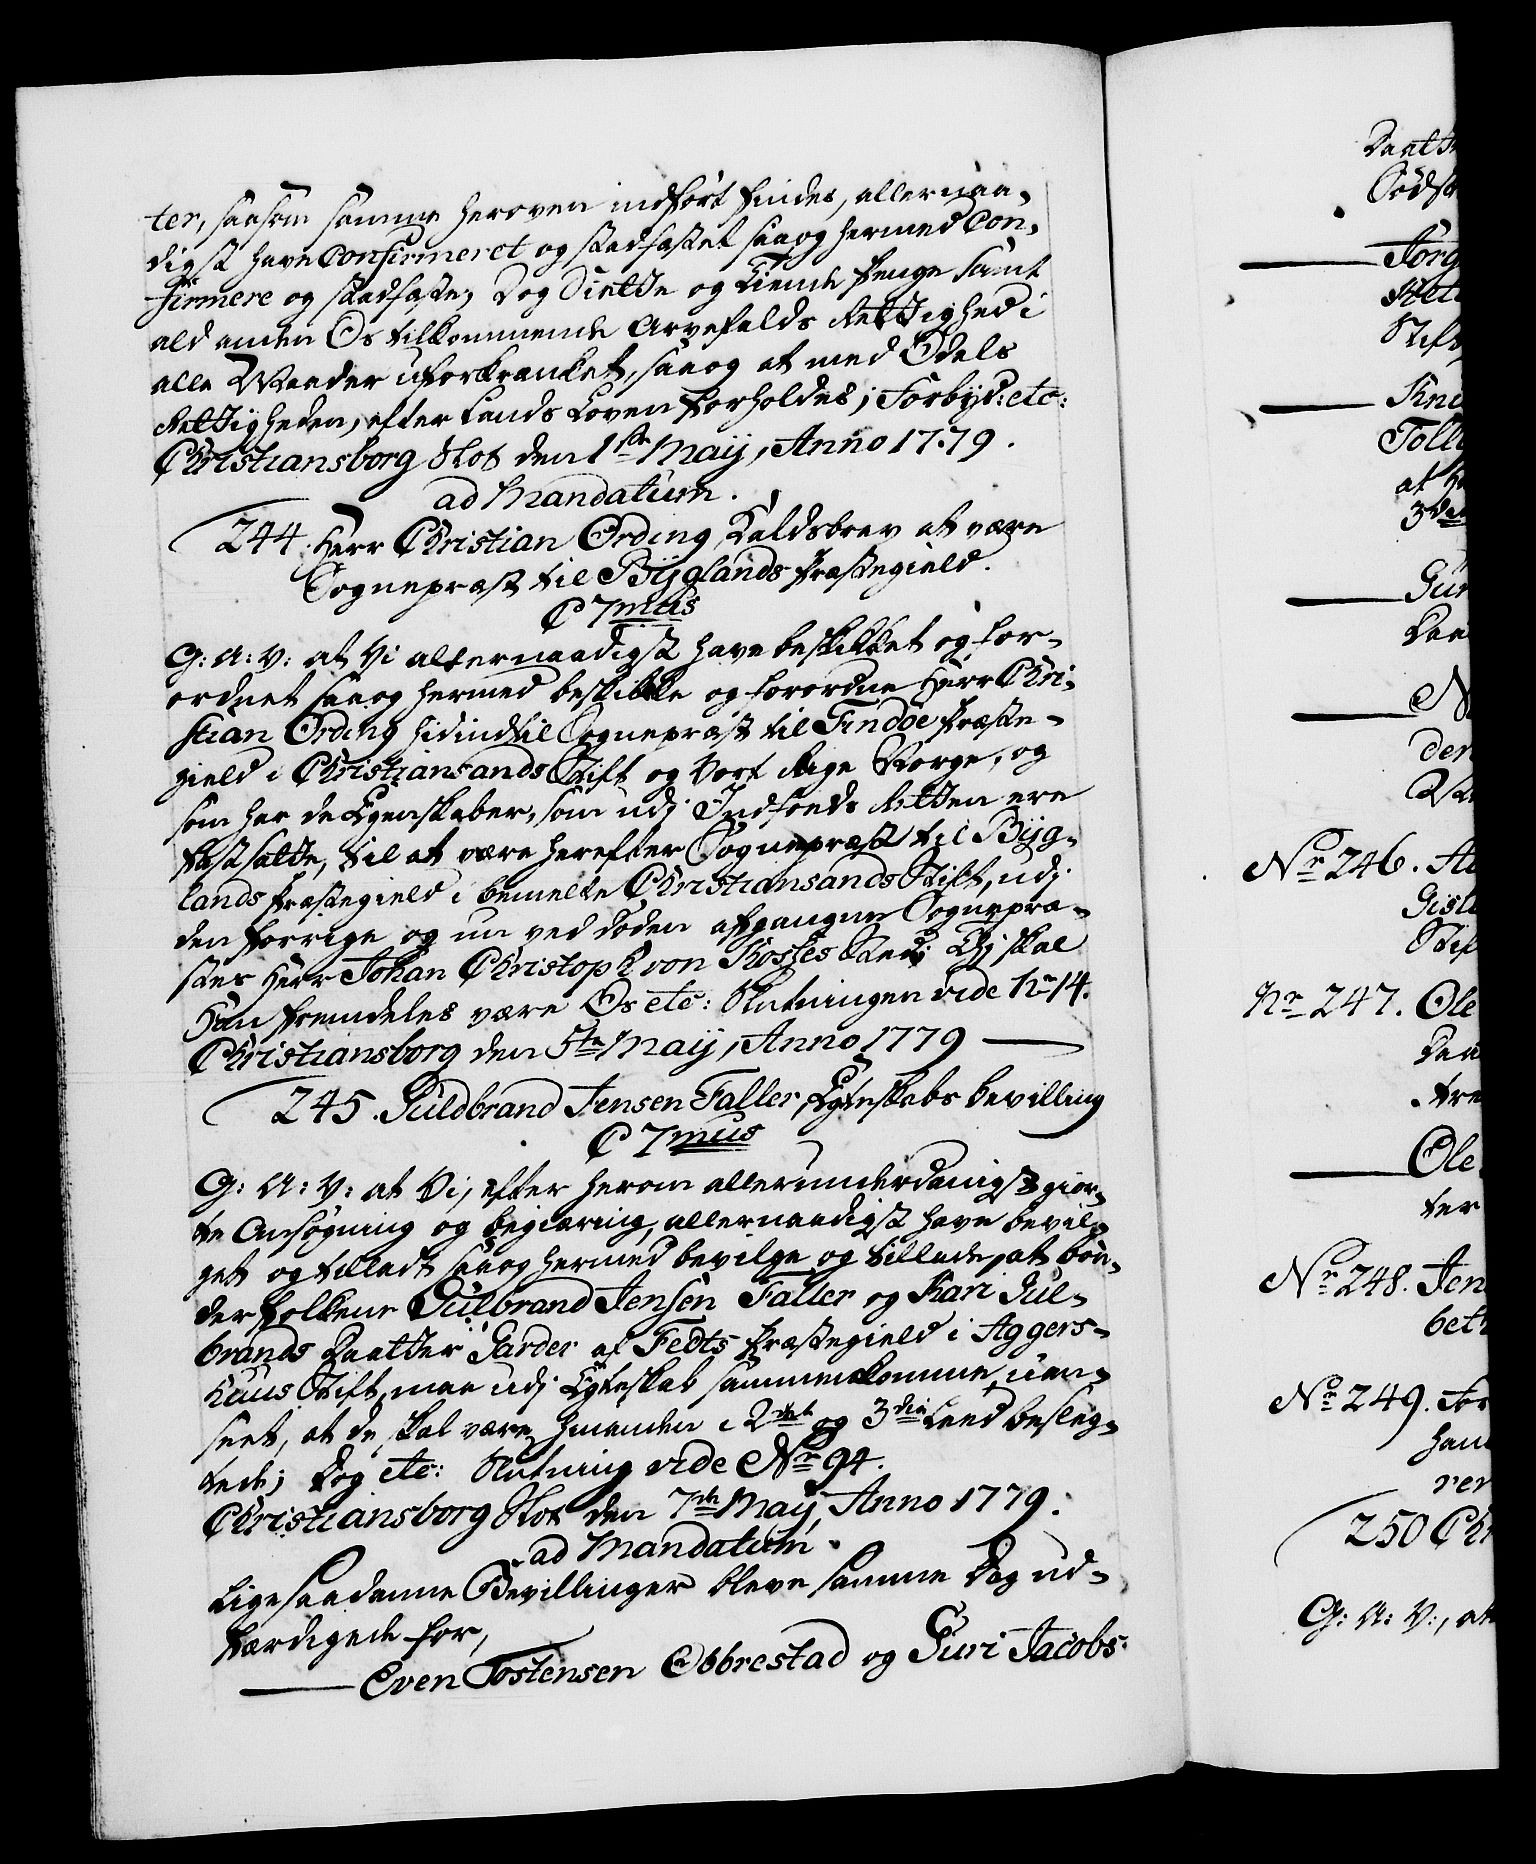 ter, saasom samme heroven indført findes, allernaa-
digst have Confirmeret og stadfæstet saa og hermed Con-
firmere og stadfæste; Dog Siette og Tiende Penge samt
ald anden Os tilkommende Arvefalds Rettighed i
alle Maader uforkrænket, saa og at med Odels
Rettigheden, efter Lands Loven forholdes; Forbyd: etc:
Christiansborg Slot den 1ste Maij, Anno 1779.
ad Mandatum.
244. Herr Christian Ording Kaldsbrev at være
Sognepræst til Byglands Præstegield.
C 7mus
G: A: V: at Vi allernaadigst have beskikket og for-
ordnet saa og hermed beskikke og forordne Herr Chri-
stian Ording hidindtil Sognepræst til Findøe Præste-
gield i Christiansands Stift og Vort Rige Norge, og
som har de Egenskaber, som udj Indføds Retten ere
fastsatte, til at være herefter Sognepræst til Byg-
lands Præstegield i bemelte Christiansands Stift, udj
den forrige og nu ved Døden afgangne Sognepræ-
stes Herr Johan Christoph von Kosses Sted; Thj skal
Han fremdeles være Os etc: Slutningen vide No 14.
Christiansborg den 5te Maij, Anno 1779
245. Guldbrand Jensen Faller, Egteskabs bevilling
C 7mus
G: A: V: at Vi, efter herom allerunderdanigst gior-
te Ansøgning og begiæring, allernaadigst have bevil-
get og tilladt saa og hermed bevilge og tillade, at bøn-
derfolkene Gulbrand Jensen Faller og Kari Gul-
brands Daatter Garder af Fedts Præstegield i Aggers-
huus Stift, maa udj Egteskab sammenkomme, uan-
seet, at de skal være hinanden i 2det og 3die Leed beslæg-
tede; Dog etc: Slutning vide Nr 94.
Christiansborg Slot den 7de Maij, Anno 1779.
ad Mandatum.
Lige saadanne Bevillinger bleve samme Dag ud-
færdigede for,
Even Tostensen Obbrestad og Guri Jacobs-
Daat
Jørg
Kn
Toll
at
3die
Gun
Daa
den
Nr 246.
Gisl
Nr 247. Ole
Daa
tre
Ole
ter
Nr 248. Jen
bet
Nr 249.
ham
rer
250 Ch
G: A: V:, at